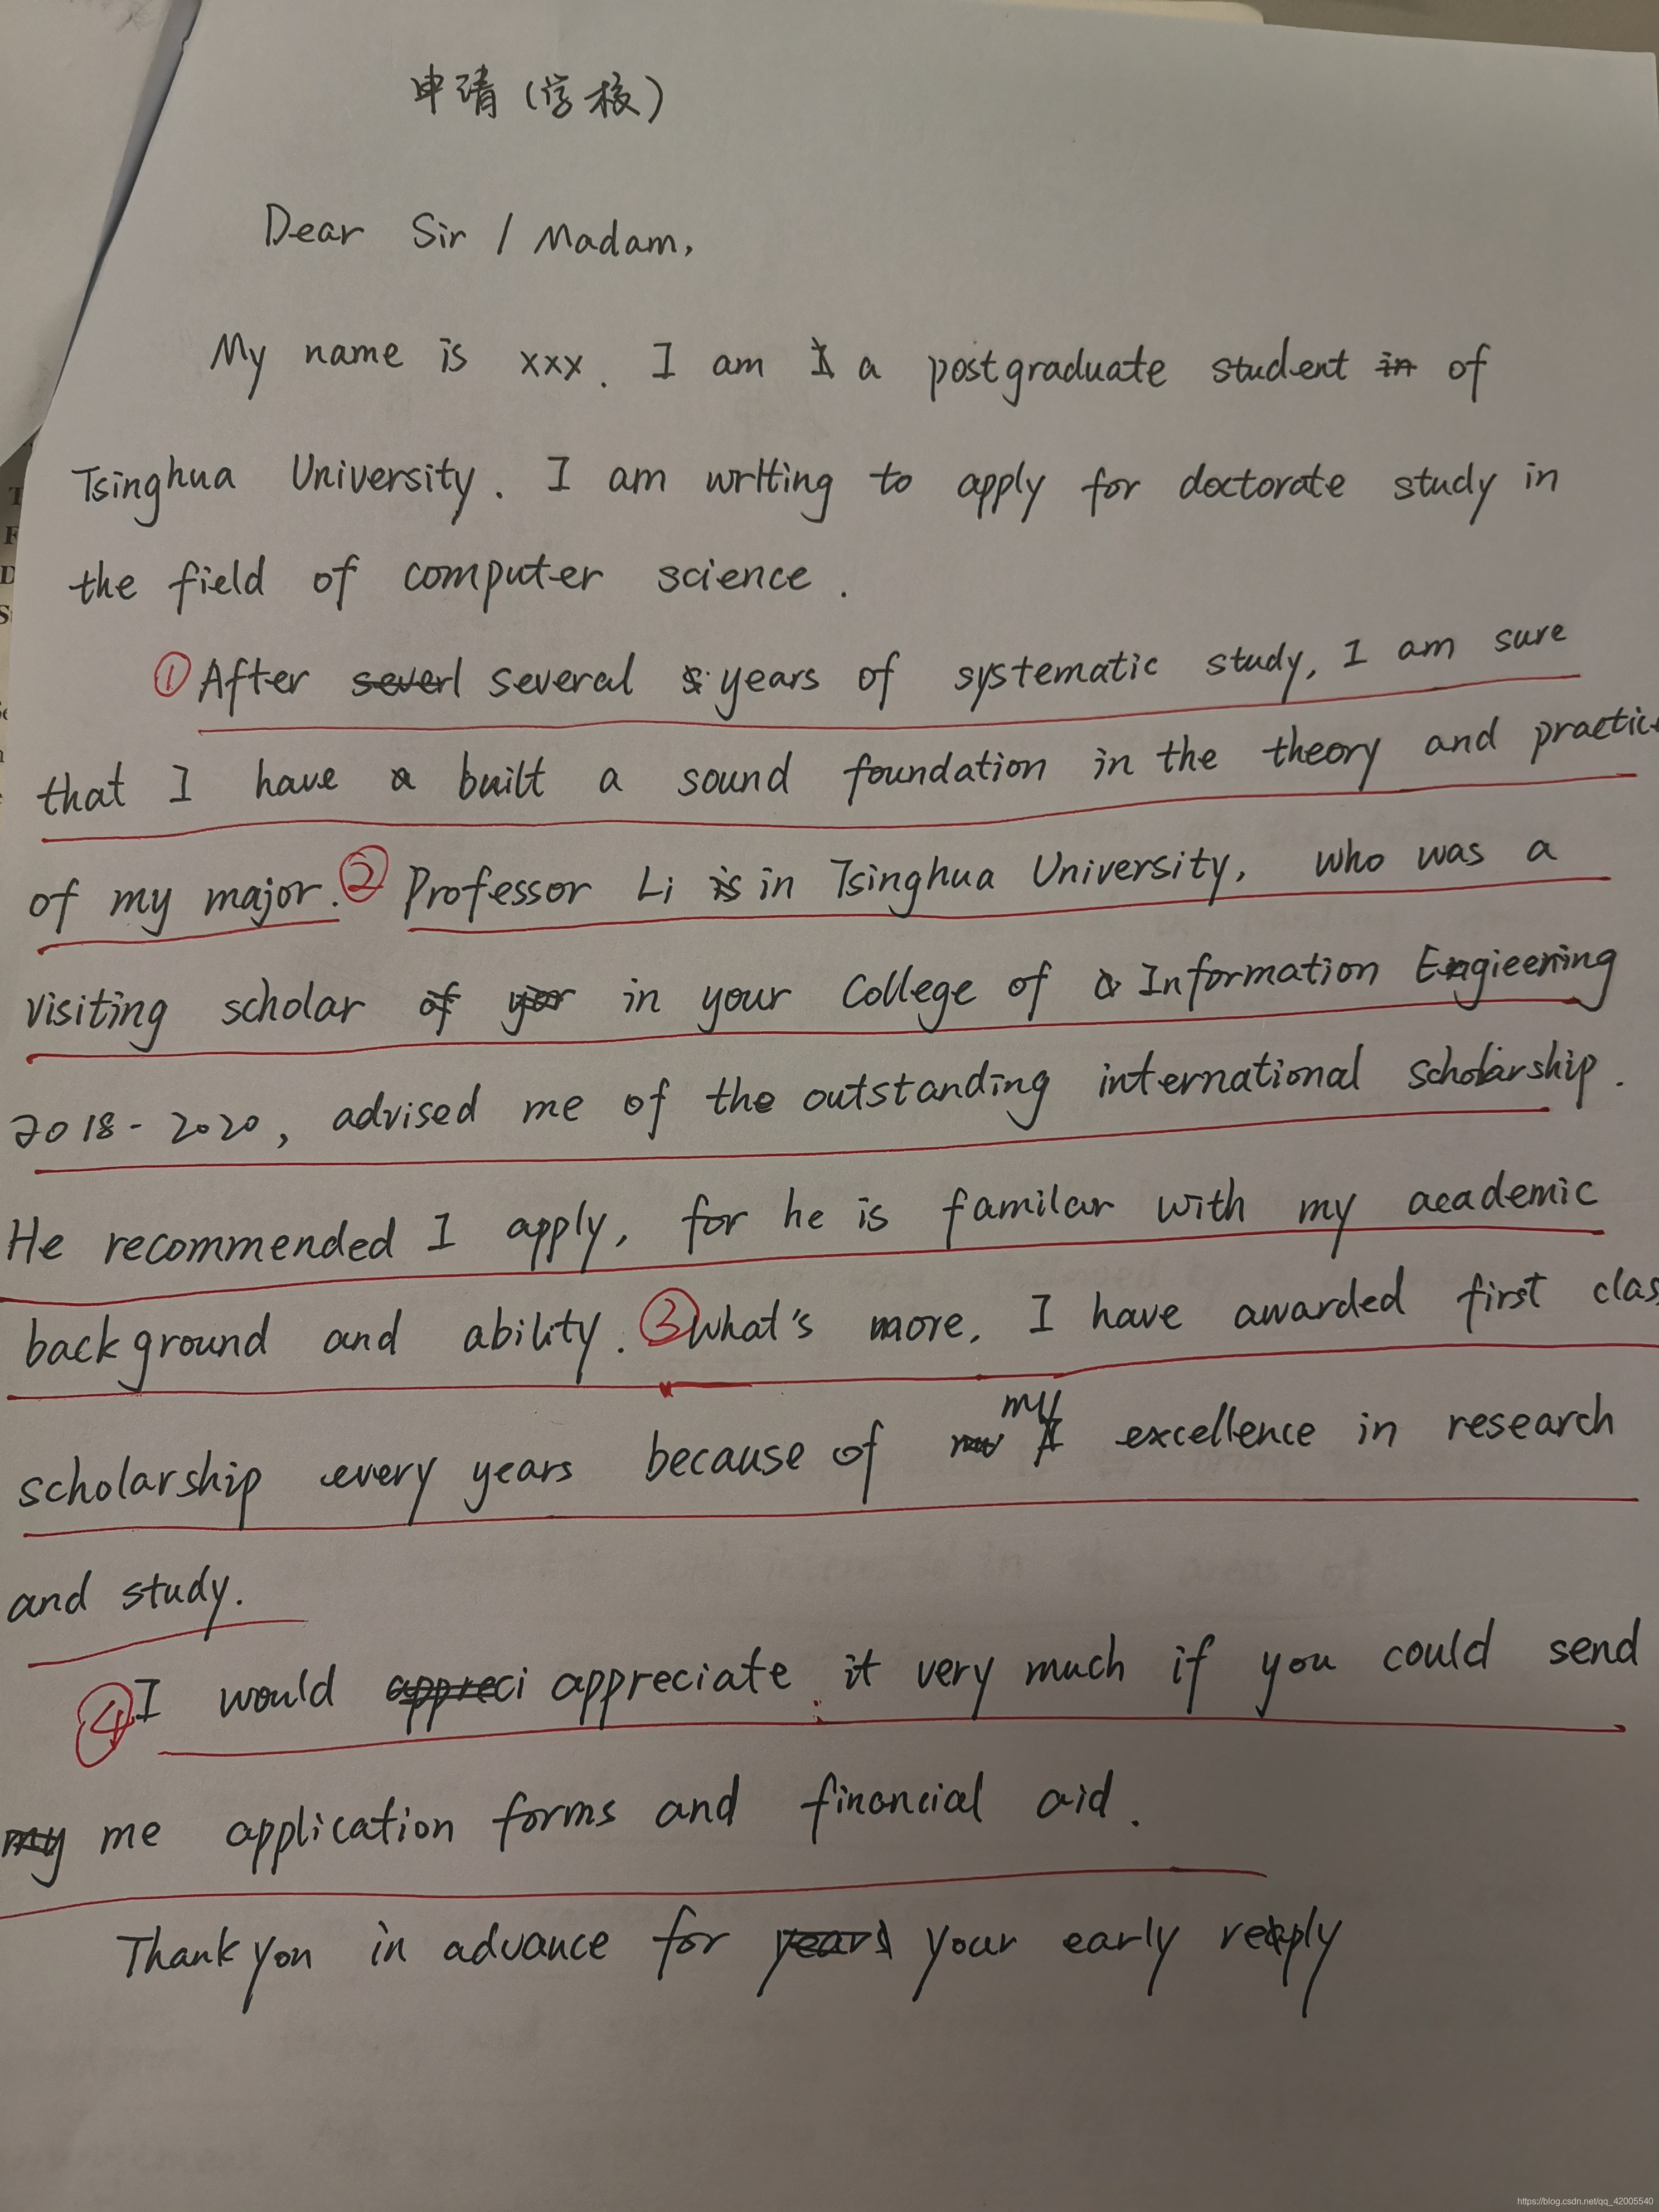 申请(学校)
Dear Sir / Madam,
My name is xxx. I am a postgraduate student of
Tsinghua University. I am writing to apply for doctorate study in
the field of computer science.
①After several years of systematic study, I am sure
that I have built a sound foundation in the theory and practic
of my major. ②Professor Li in Tsinghua University, who was a
visiting scholar in your College of Information Engieering
2018-2020, advised me of the outstanding international scholarship.
He recommended I apply, for he is familar with my academic
background and ability. ③What's more, I have awarded first clas
scholarship every years because of my excellence in research
and study.
④I would appreciate it very much if you could send
me application forms and financial aid.
Thank you in advance for your early reply
https://blog.csdn.net/qq_42005540